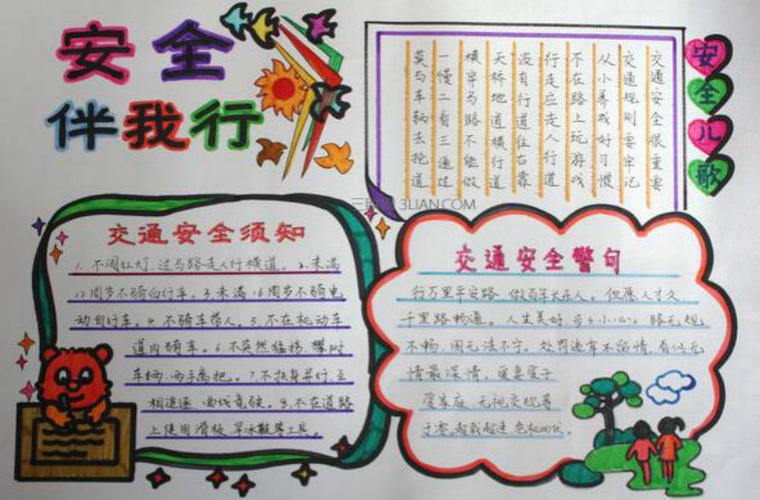 安全
伴我行
安全儿歌
交通安全很重要
交通规则要牢记
从小养成好习惯
不在路上玩游戏
行走应走人行道
没有行道往右靠
天桥地道横行道
横穿马路不能做
一慢二看三通过
莫与车辆去抢道
3LIAN.COM
交通安全须知
1.不闯红灯,过马路走人行横道。2.未满
12周岁不骑自行车。3.未满16周岁不骑电
动自行车。4.不骑车带人。5.不在机动车
道内骑车。6.不突然猛拐、攀附
车辆,双手离把。7.不扶身并行、互
相追逐、曲线竞驶。8.不在道路
上使用滑板、旱冰鞋等工具。
交通安全警句
行万里平安路 做百年快乐人。但愿人长久
千里路畅通。人生美好 步步小心。路无规
不畅,国无法不宁。处罚违章不留情,看似无
情最深情。爱妻爱子
爱家庭,无视交规等
于零。超载超速 危机四伏。